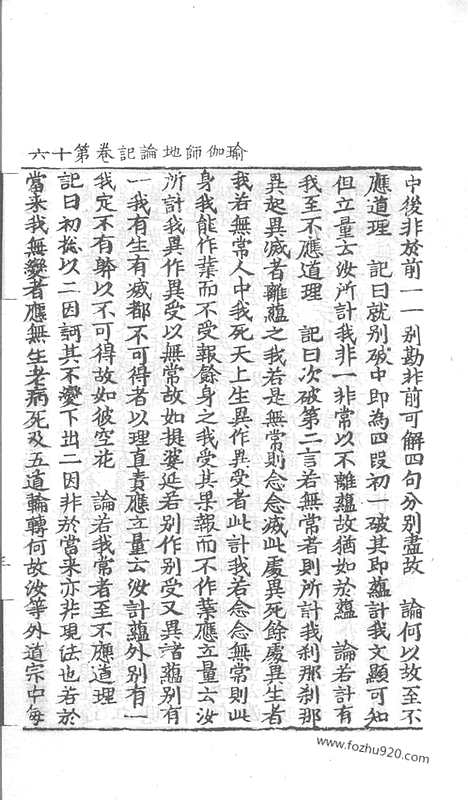 瑜伽師地論記卷第十六
中後非於前一一別勘非前可解四句分別盡故　論何以故至不
應道理　記曰就別破中即為四段初一破其即蘊計我文顯可知
但立量云汝所計我非一非常以不離蘊故猶如於蘊　論若計有
我至不應道理　記曰次破第二言若無常者則所計我刹那刹那
異起異滅者離蘊之我若是無常則念念滅此處異死餘處異生者
我若無常人中我死天上生異作異受者此計我若念念無常則此
身我能作業而不受報餘身之我受其果報而不作業應立量云汝
所計我異作異受以無常故如提婆延若別作別受又異諸蘊別有
一我有生有滅都不可得者以理直責應立量云汝計蘊外別有一
我定不有躰以不可得故如彼空花　論若我常者至不應道理
記曰初捴以二因詞其不變下出二因非於當来亦非現法也若於
當来我無變者應無生老病死及五道輪轉何故汝等外道宗中每
www.fozhu920.com